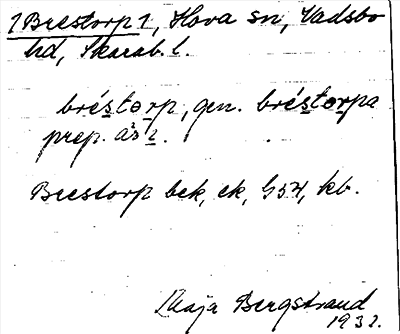 1 Brestorp 1, Hova sn, Vadsbo
hd, Skarab. l.
bréstorp, gen. bréstorpa
prep. i
Brestorp bek, ek, G54, kb.
Maja Bergstrand
1932.